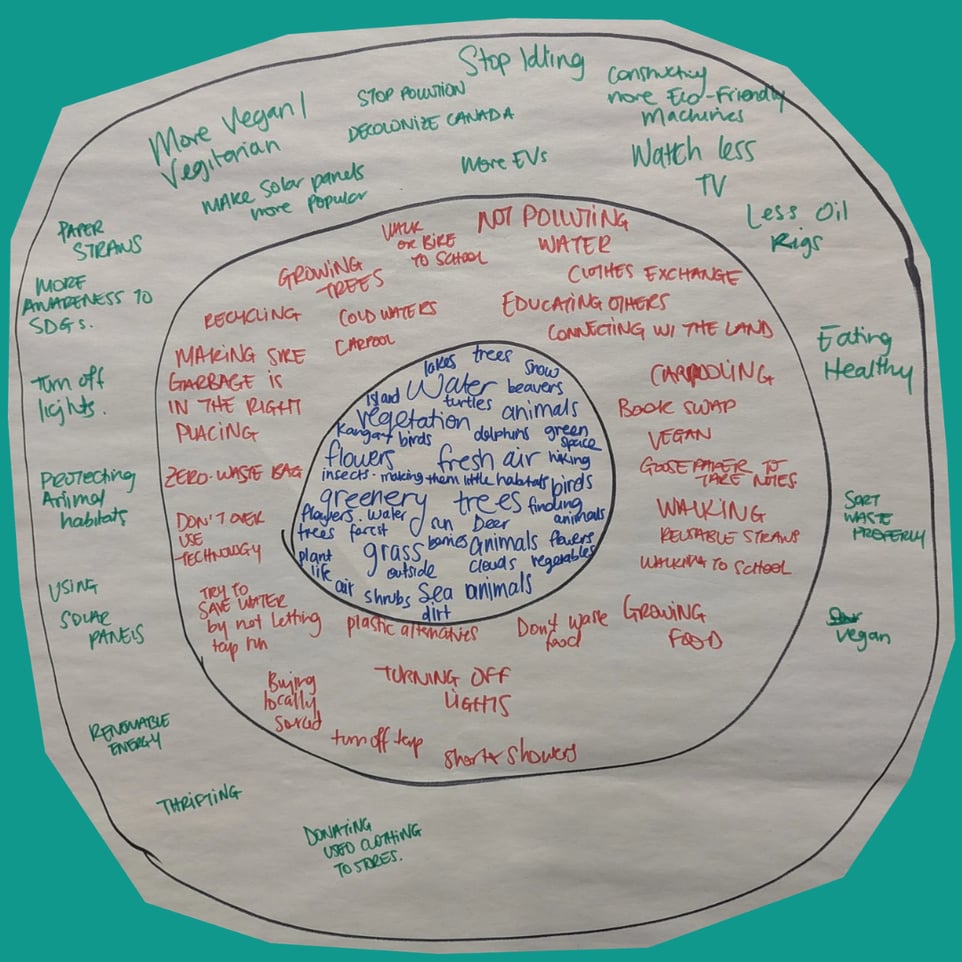 Stop Idling
Constructing
more Eco-Friendly
Machines
STOP POLLUTION
DECOLONIZE CANADA
More Vegan/
Vegitarian
More EVs
Watch less
TV
MAKE Solar panels
more Popular
Less Oil
Rigs
PAPER
STRAWS
MORE
AWARENESS TO
SDGs.
Turn off
lights.
Protecting
Animal
habitats
USING
SOLAR
PANELS
RENEWABLE
ENERGY
THRIFTING
DONATING
USED CLOTHING
TO STORES.
Eating
Healthy
SORT
WASTE
PROPERLY
vegan
WALK
OR BIKE
TO SCHOOL
NOT POLLUTING
WATER
GROWING
TREES
CLOTHES EXCHANGE
RECYCLING
COLD WATERS
EDUCATING OTHERS
CARPOOL
CONNECTING W/ THE LAND
MAKING SURE
GARBAGE IS
IN THE RIGHT
PLACING
CARPOOLING
BOOK SWAP
VEGAN
ZERO-WASTE BAG
GOOSE PAPER TO
TAKE NOTES
DON'T OVER
USE
TECHNOLOGY
WALKING
REUSABLE STRAWS
WALKING TO SCHOOL
TRY TO
SAVE WATER
by not letting
tap run
plastic alternatives
Don't waste
food
GROWING
FOOD
Buying
locally
sourced
TURNING OFF
LIGHTS
turn off tap
shorter showers
lakes trees snow
Island Water beavers
turtles animals
vegetation
birds dolphins green
space
flowers fresh air hiking
insects - making them little habitats birds
greenery trees finding
animals
flowers water Deer
trees forest berries animals flowers
plant grass clouds vegetables
life outside
air shrubs Sea animals
dirt